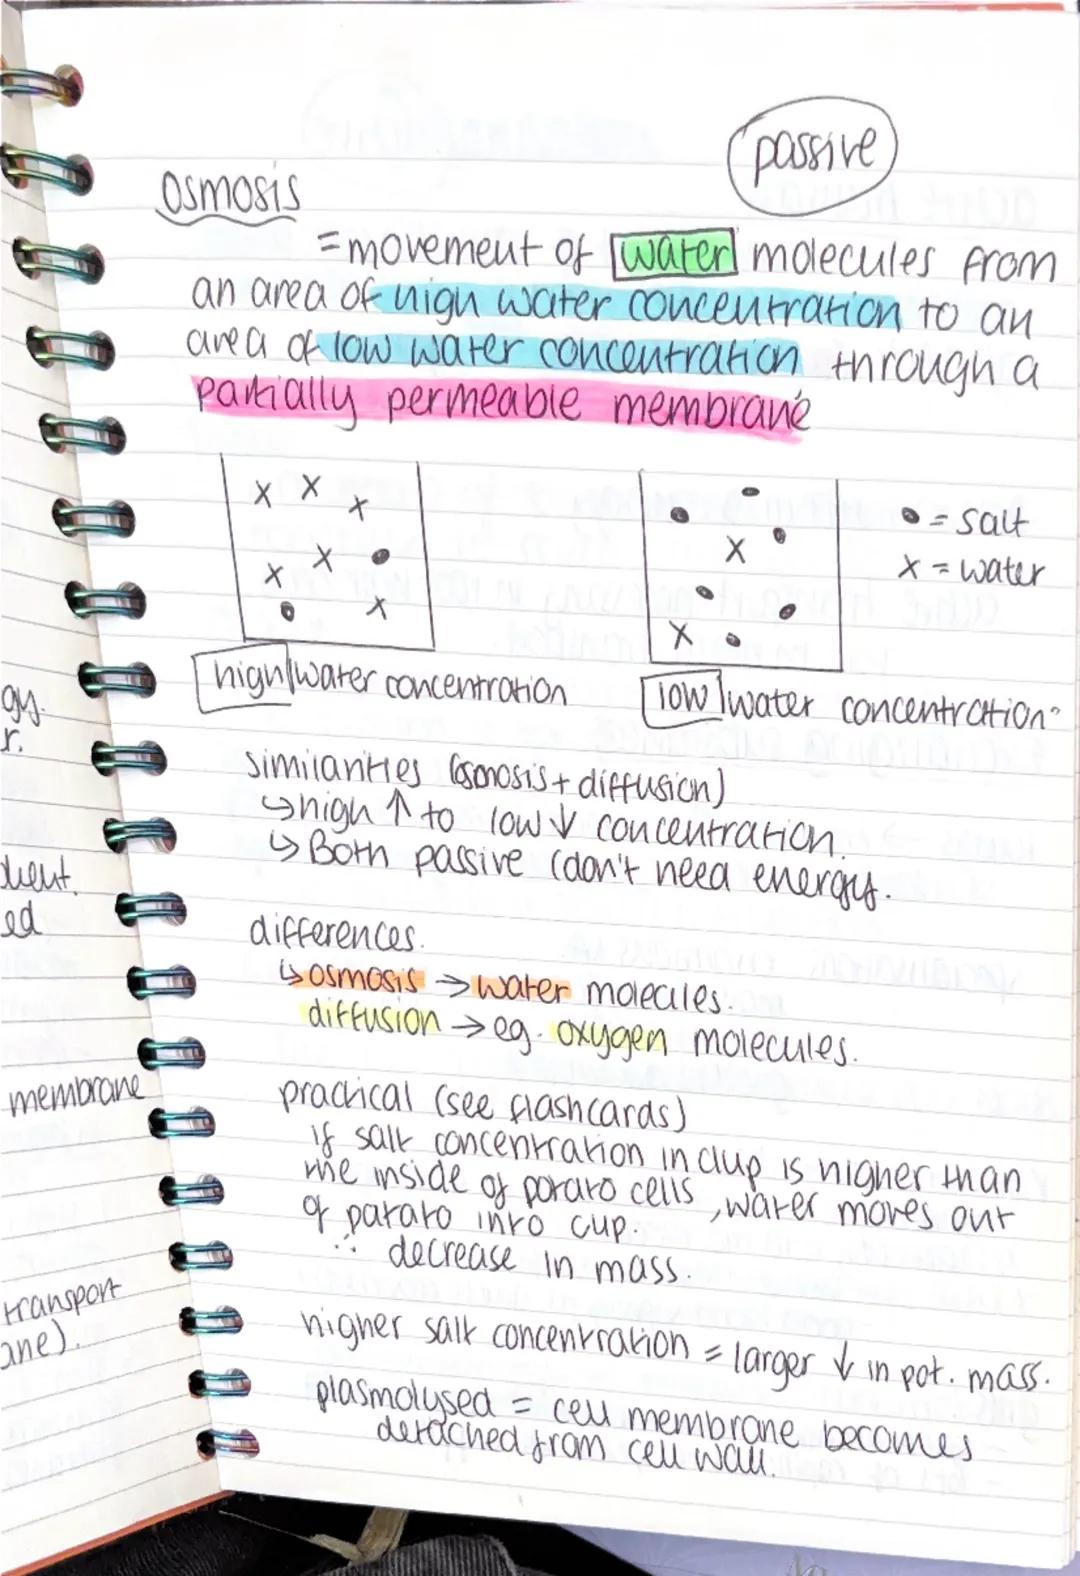 passive
osmosis
= movement of water molecules from
an area of high water concentration to an
area of low water concentration through a
partially permeable membrane
X X X
X X
X
X
X
• = salt
X = water
high water concentration
low water concentration
similarities (osmosis + diffusion)
↳ high ↑ to low ↓ concentration.
↳ Both passive (don't need energy.
differences.
↳ osmosis → water molecules.
diffusion → eg. oxygen molecules.
practical (see flashcards)
if salt concentration in cup is higher than
the inside of potato cells, water moves out
of potato into cup.
∴ decrease in mass.
higher salt concentration = larger ↓ in pot. mass.
plasmolysed = cell membrane becomes
detached from cell wall.
gy.
r.
ed
membrane
transport
ane).